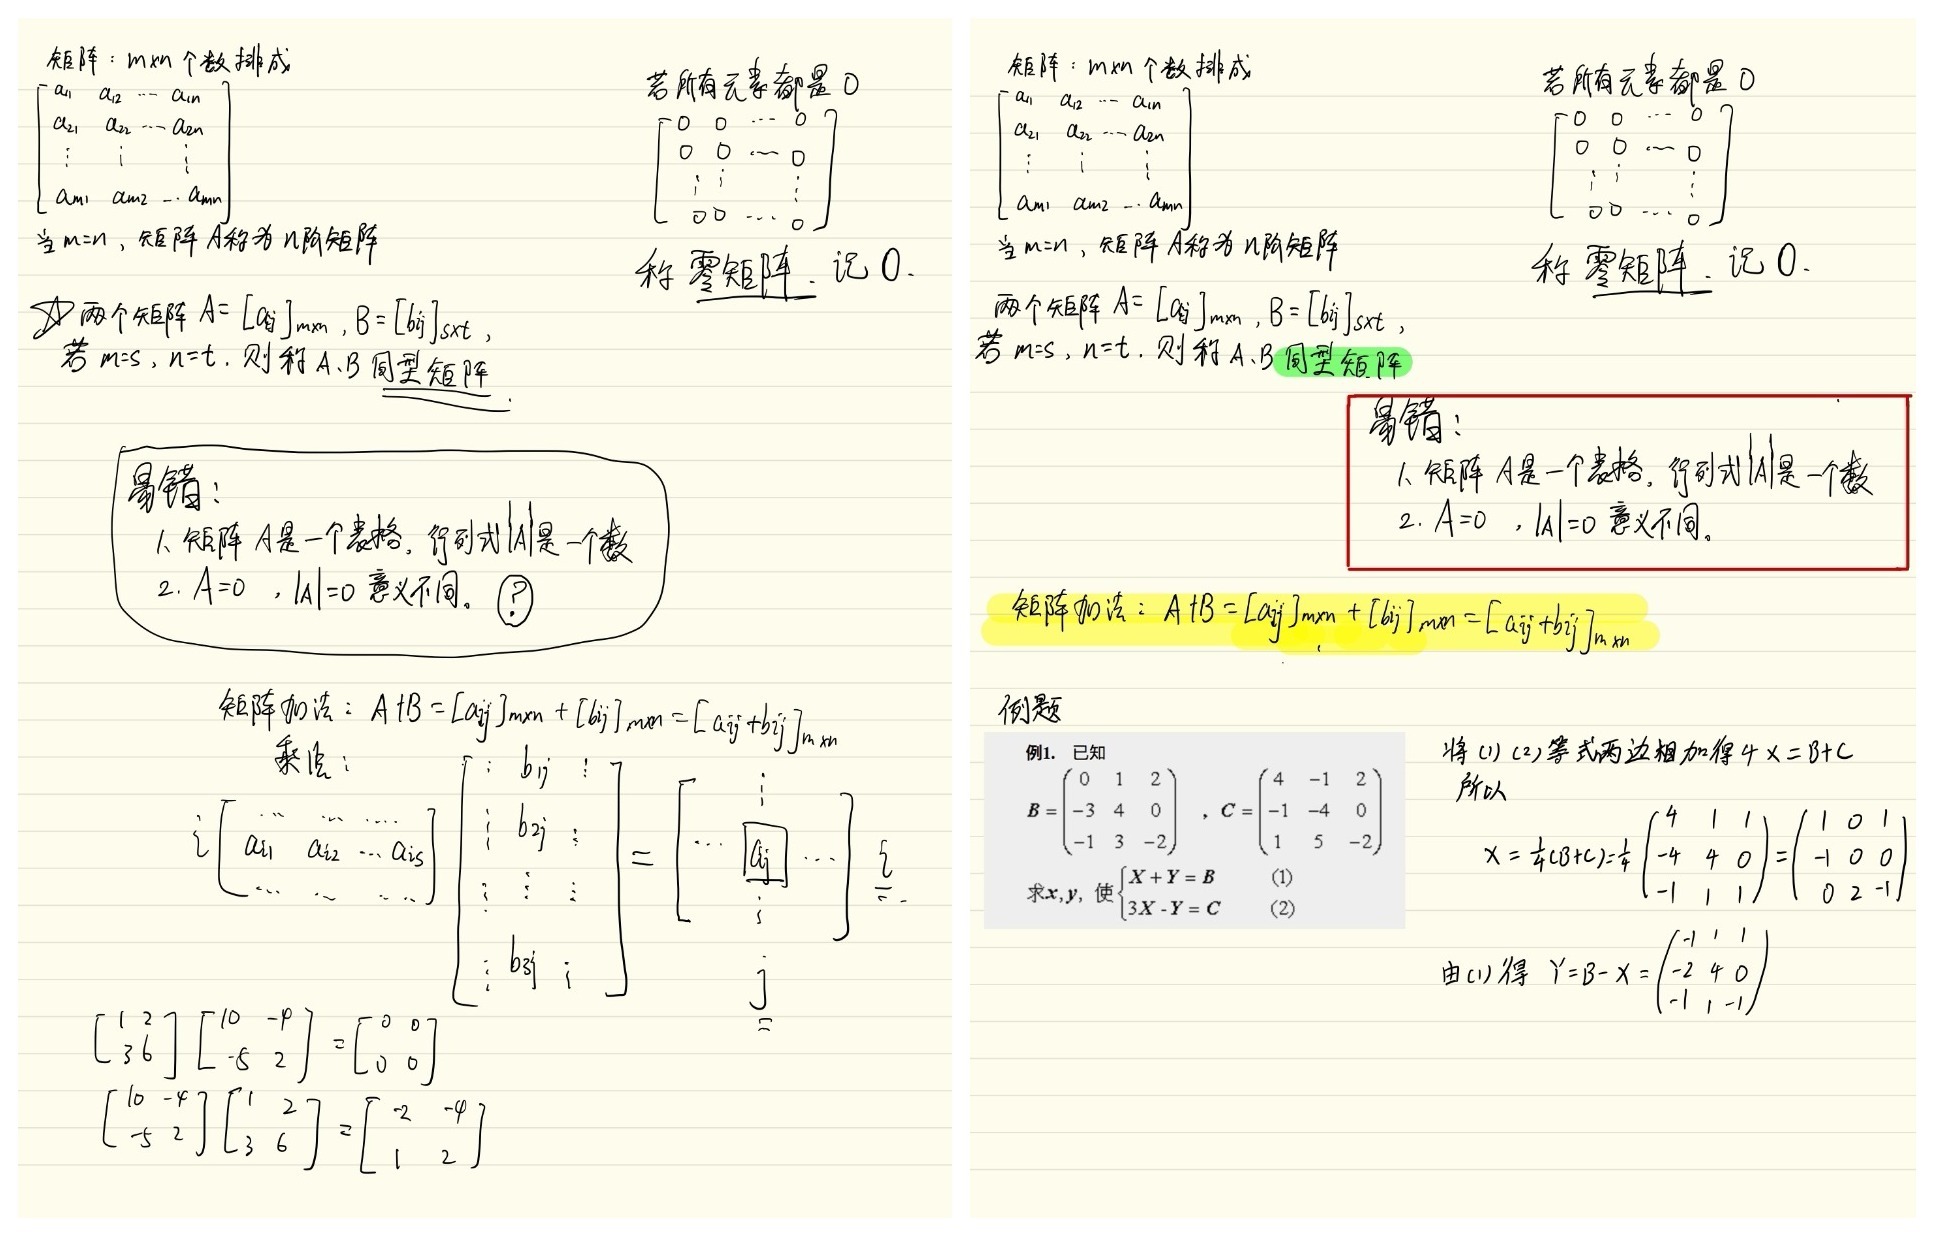 矩阵：m×n 个数排成
[ a11 a12 … a1n
a21 a22 … a2n
⋮ ⋮ ⋮
am1 am2 … amn ]
当 m=n，矩阵 A称为 n阶矩阵
若所有元素都是 0
[ 0 0 … 0
0 0 … 0
⋮ ⋮ ⋮
0 0 … 0 ]
称 零矩阵．记 O.
☆ 两个矩阵 A=[aij]m×n , B=[bij]s×t ,
若 m=s , n=t . 则称 A、B 同型矩阵．
易错：
1、矩阵 A是一个表格，行列式|A|是一个数
2. A=0 , |A|=0 意义不同。?
矩阵加法：A+B=[aij]m×n+[bij]m×n=[aij+bij]m×n
乘法：
i [ … … …
ai1 ai2 … ais
… … … ]
[ ⋮ b1j ⋮
⋮ b2j ⋮
⋮ ⋮ ⋮
⋮ b3j ⋮ ]
= [ ⋮
… aij …
⋮ ] i
j
[ 1 2
3 6 ] [ 10 -4
-5 2 ] = [ 0 0
0 0 ]
[ 10 -4
-5 2 ] [ 1 2
3 6 ] = [ -2 -4
1 2 ]
矩阵：m×n 个数排成
[ a11 a12 … a1n
a21 a22 … a2n
⋮ ⋮ ⋮
am1 am2 … amn ]
当 m=n，矩阵 A称为 n阶矩阵
若所有元素都是 0
[ 0 0 … 0
0 0 … 0
⋮ ⋮ ⋮
0 0 … 0 ]
称 零矩阵．记 O.
两个矩阵 A=[aij]m×n , B=[bij]s×t ,
若 m=s , n=t . 则称 A、B 同型矩阵
易错：
1、矩阵 A是一个表格，行列式|A|是一个数
2. A=0 , |A|=0 意义不同。
矩阵加法：A+B=[aij]m×n+[bij]m×n=[aij+bij]m×n
例题
例1. 已知
B= ( 0 1 2
-3 4 0
-1 3 -2 )
, C= ( 4 -1 2
-1 -4 0
1 5 -2 )
求x,y, 使 { X+Y=B (1)
3X-Y=C (2)
将(1)(2)等式两边相加得4X=B+C
所以
X=¼(B+C)=¼ ( 4 1 1
-4 4 0
-1 1 1 )
= ( 1 0 1
-1 0 0
0 2 -1 )
由(1)得 Y=B-X= ( -1 1 1
-2 4 0
-1 1 -1 )